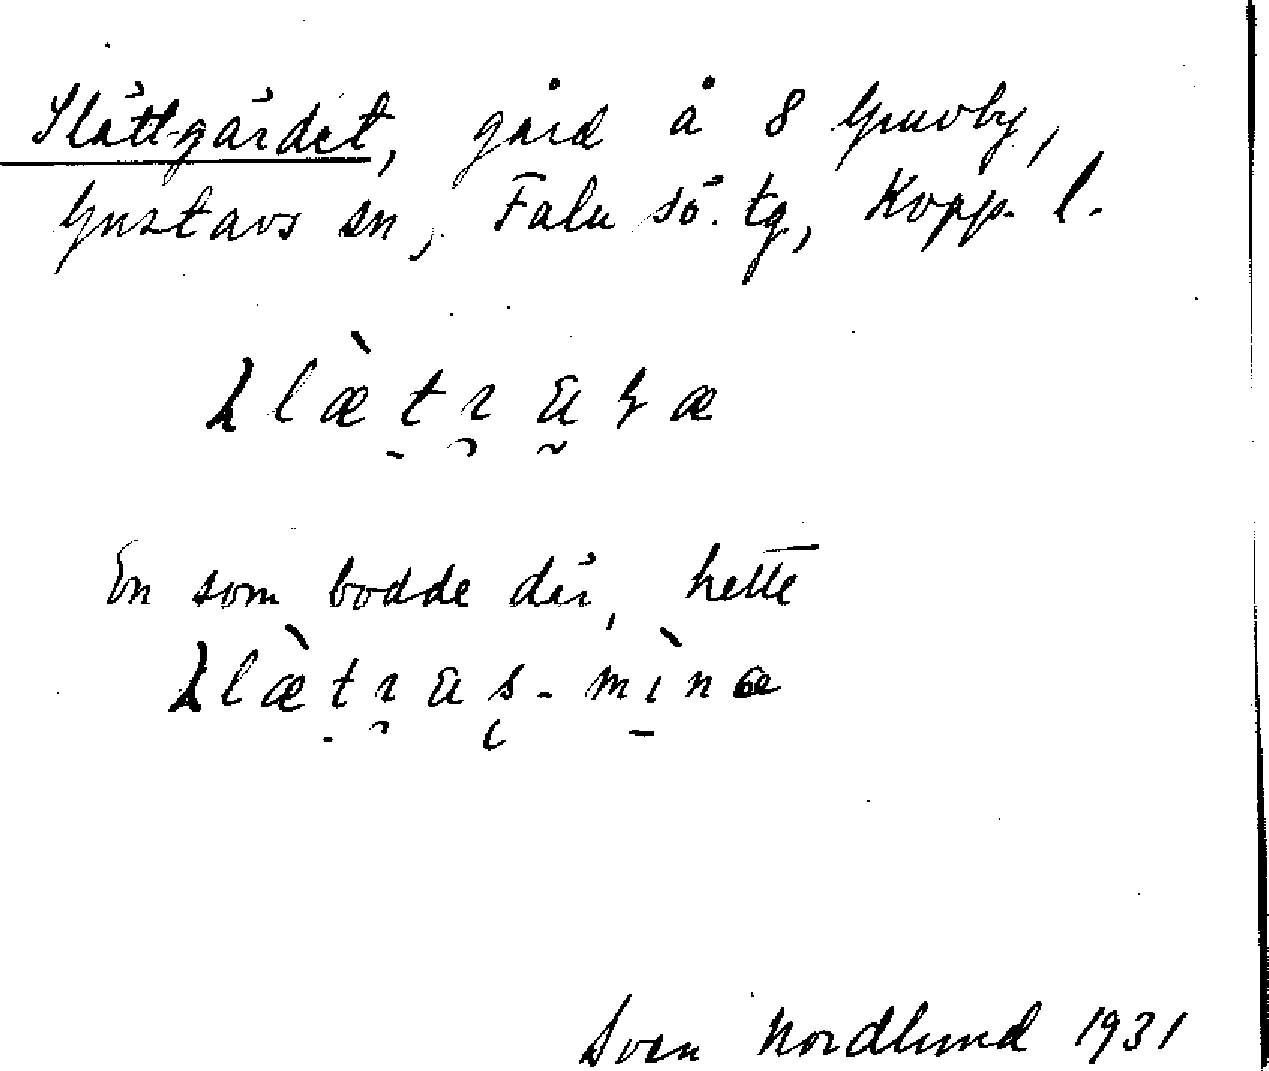 Slätt-gärdet, gård å 8 Gruvby,
Gustavs sn, Falu sö. tg, Kopp. l.
En som bodde där, hette
Sven Nordlund 1931